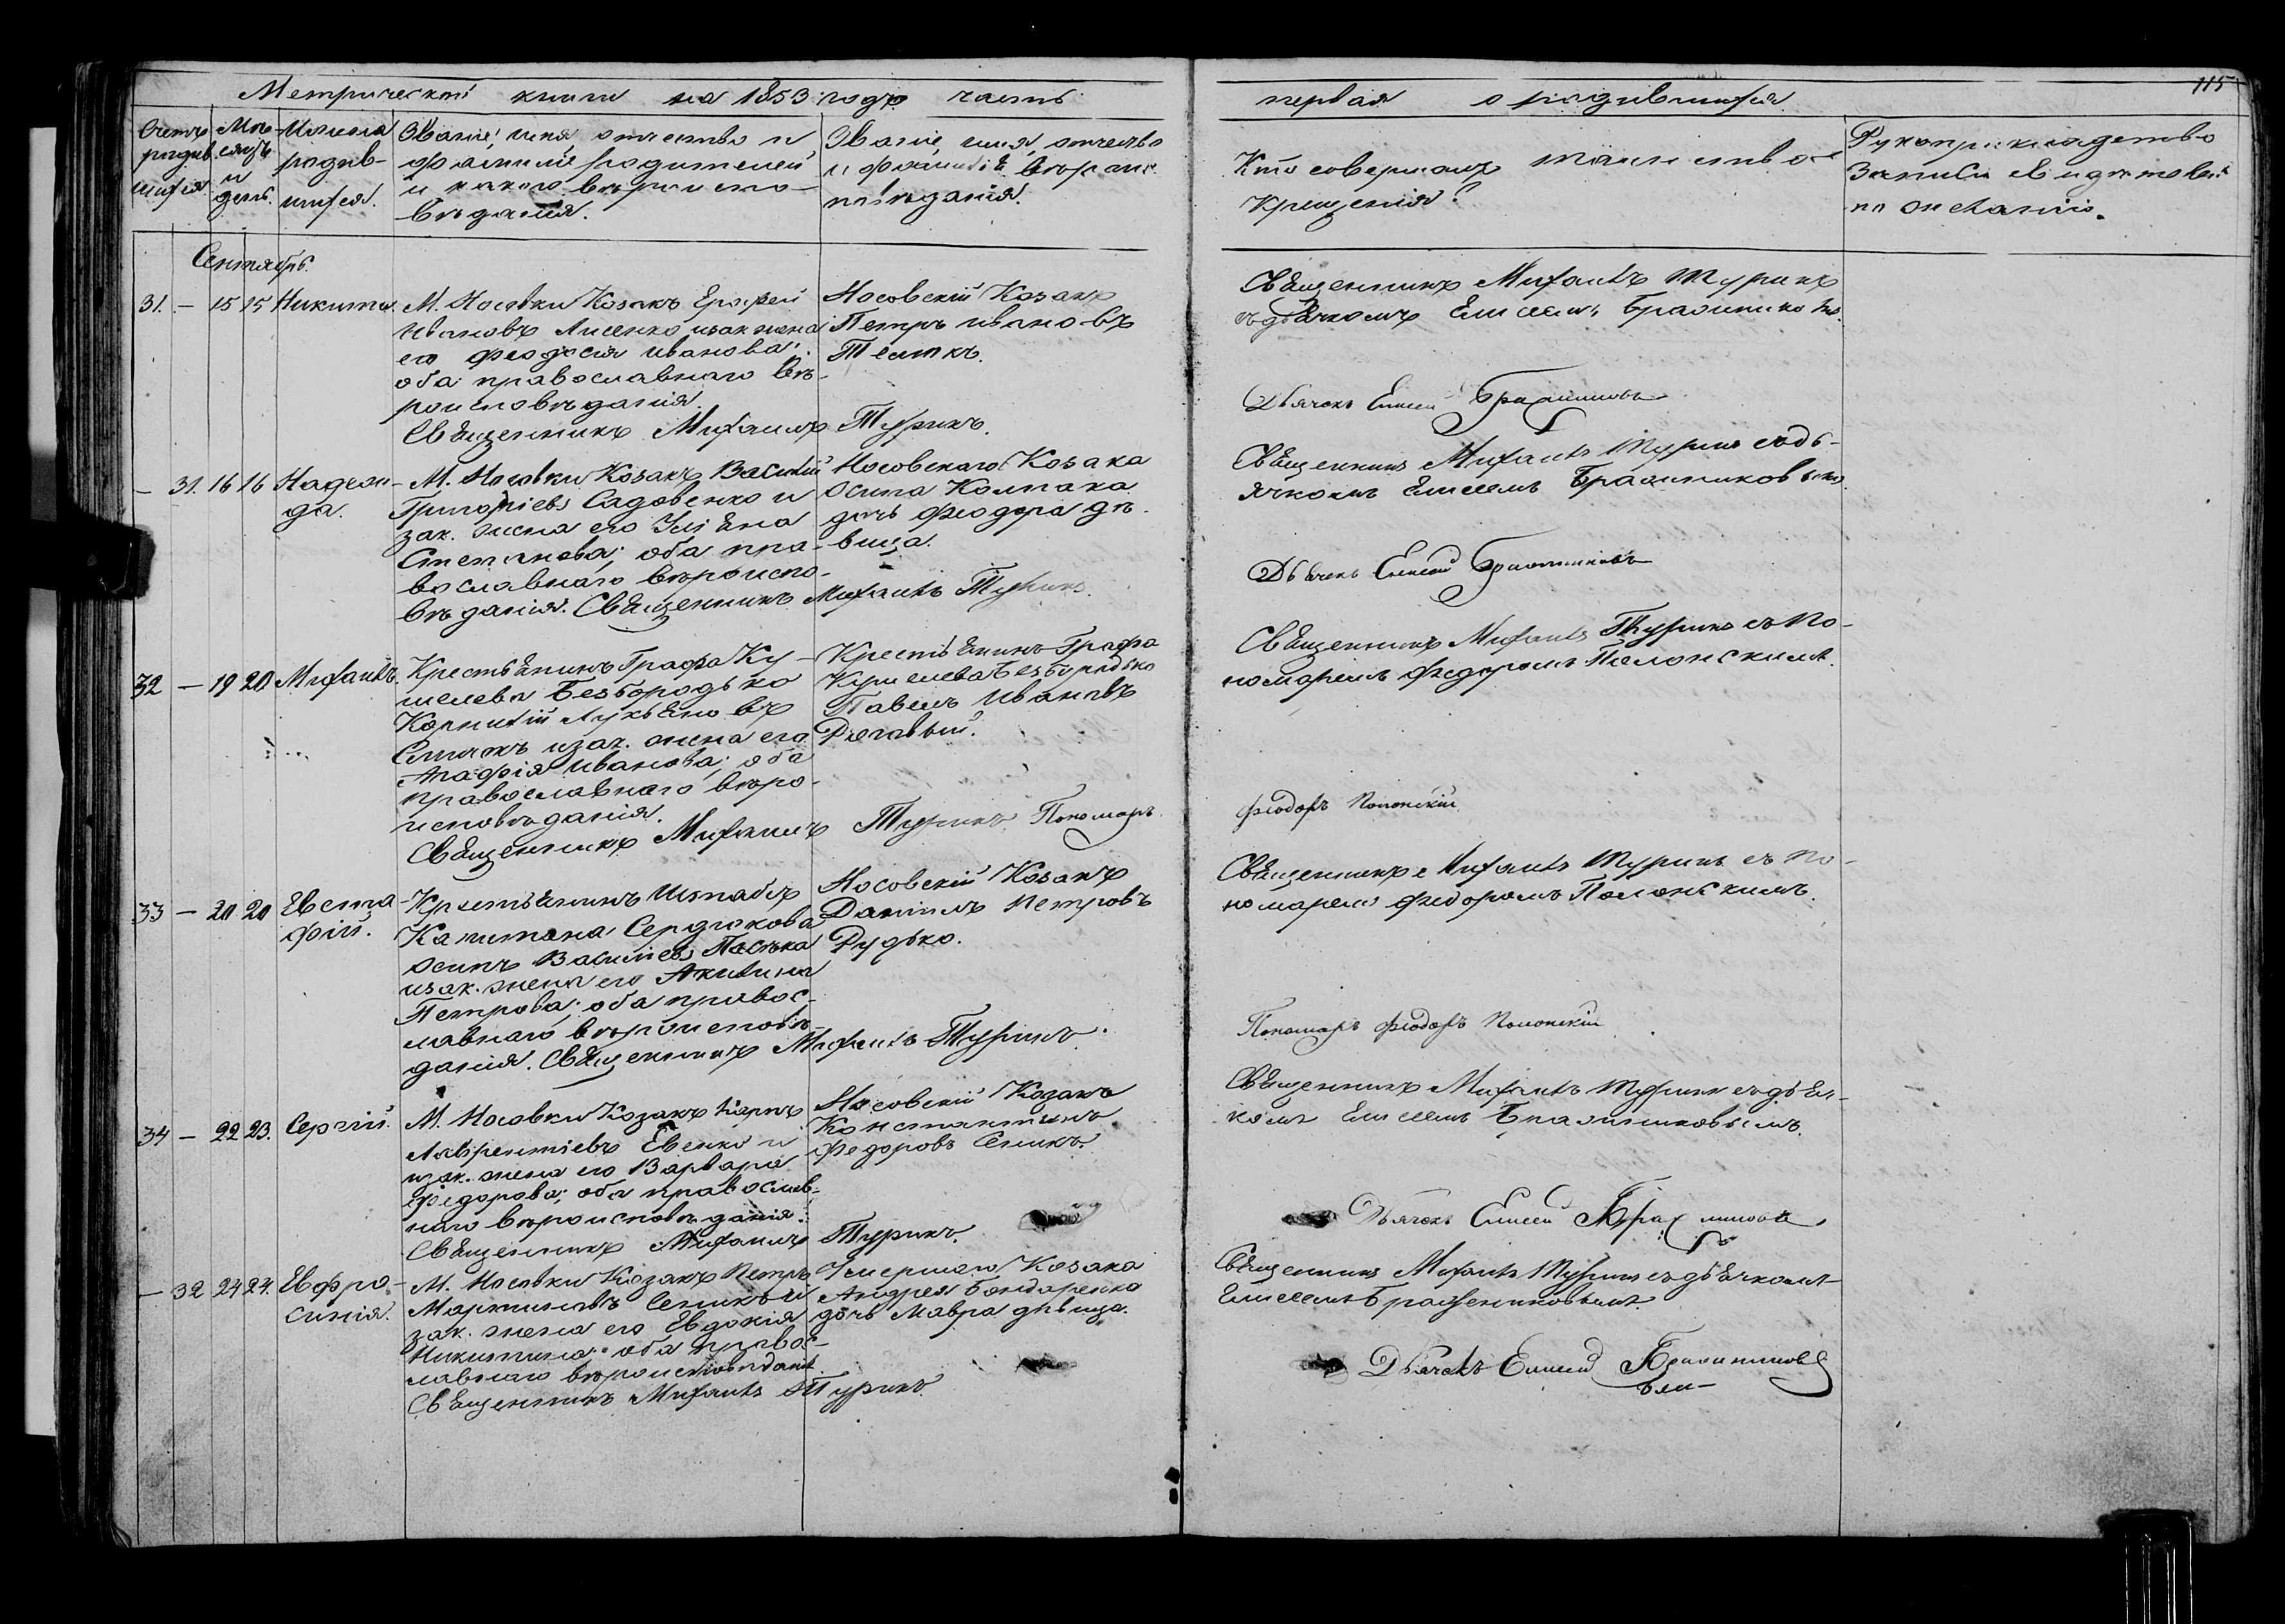 115
Метрической книги на 1853 годъ часть
первая о родившихся
Счетъ родив-шихся.
Мѣсяцъ и день.
Имена родив-шихся.
Званіе, имя, отчество и
фамилія родителей
и какого вѣроиспо-
вѣданія.
Званіе, имя, отчество
и фамилія воспріе.
Кто совершалъ таинство
Крещенія?
Рукоприкладство
записи свидѣтелей
по желанію.
Сентябрь.
31. – 15 15 Никита.
М. Носовки Козакъ Ерофей
Ивановъ Лисенко изак жена
его Феодосія Иванова;
оба православнаго вѣ-
роисповѣданія
Священникъ Михаилъ Турикъ.
Носовскій Козакъ
Петръ Ивановъ
Священникъ Михаилъ Турикъ
съ дьячкомъ Елисеемъ
Дьячекъ Елисей Бражниковъ
– 31. 16 16 Надеж-
да.
М. Носовки Козакъ Василій
Григоріевъ Садовенко и
зак. жена его Уліяна
Степанова; оба пра-
вославнаго вѣроиспо-
вѣданія. Священникъ Михаилъ Турикъ.
Носовскаго Козака
Осипа Колпака
дочь Феодора дѣ-
вица.
Священникъ Михаилъ Турикъ съ дь-
ячкомъ Елисеемъ Бражниковымъ
Дьячекъ Елисей Бражниковъ
32 – 19 20 Михаилъ.
Крестьянинъ Графа Ку-
шелева Безбородько
Корнилій Лукьяновъ
изак. жена его
Агафія Иванова; оба
православнаго вѣро-
исповѣданія.
Священникъ Михаилъ Турикъ. Пономарь
Крестьянинъ Графа
Кушелева Безбородько
Павелъ Ивановъ
Священникъ Михаилъ Турикъ съ По-
номаремъ Федоромъ Полонскимъ.
Феодоръ Полонскій
33 – 20 20 Евста-
фій.
Крестьянинъ Штабсъ
Капитана Сердюкова
Осипъ Василіевъ Пасѣка
изак. жена его Акилина
Петрова; оба правос-
лавнаго вѣроисповѣ-
данія. Священникъ Михаилъ Турикъ.
Носовскій Козакъ
Даніилъ Петровъ
Рудько.
Священникъ Михаилъ Турикъ съ По-
номаремъ Федоромъ Полонскимъ.
Пономарь Феодоръ Полонскій
34 – 22 23. Сергій.
М. Носовки Козакъ Карпъ
Лаврентіевъ Евенко и
зак. жена его Варвара
Федорова; оба православ-
наго вѣроисповѣданія.
Священникъ Михаилъ Турикъ.
Носовскій Козакъ
Константинъ
Федоровъ Семикъ.
Священникъ Михаилъ Турикъ съ дьяч-
комъ Елисеемъ Бражниковымъ.
Дьячекъ Елисей Бражниковъ
– 32 24 24. Евфро-
синія.
М. Носовки Козакъ Петръ
Мартиновъ Семикъ и
зак. жена его Евдокія
Никитина; оба правос-
лавнаго вѣроисповѣданія.
Священникъ Михаилъ Турикъ.
Умершаго Козака
Андрея Бондаренка
дочь Мавра дѣвица.
Священникъ Михаилъ Турикъ съ дьячкомъ
Елисеемъ Бражниковымъ
Дьячекъ Елисей Бражниковъ